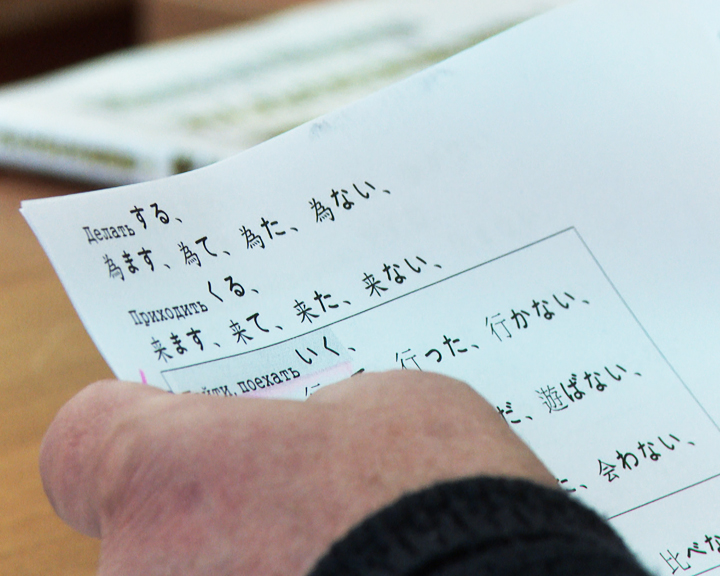 Делать する、
為ます、為て、為た、為ない、
Приходить くる、
来ます、来て、来た、来ない、
поехать いく、
行った、行かない、
だ、遊ばない、
会わない、
比べな